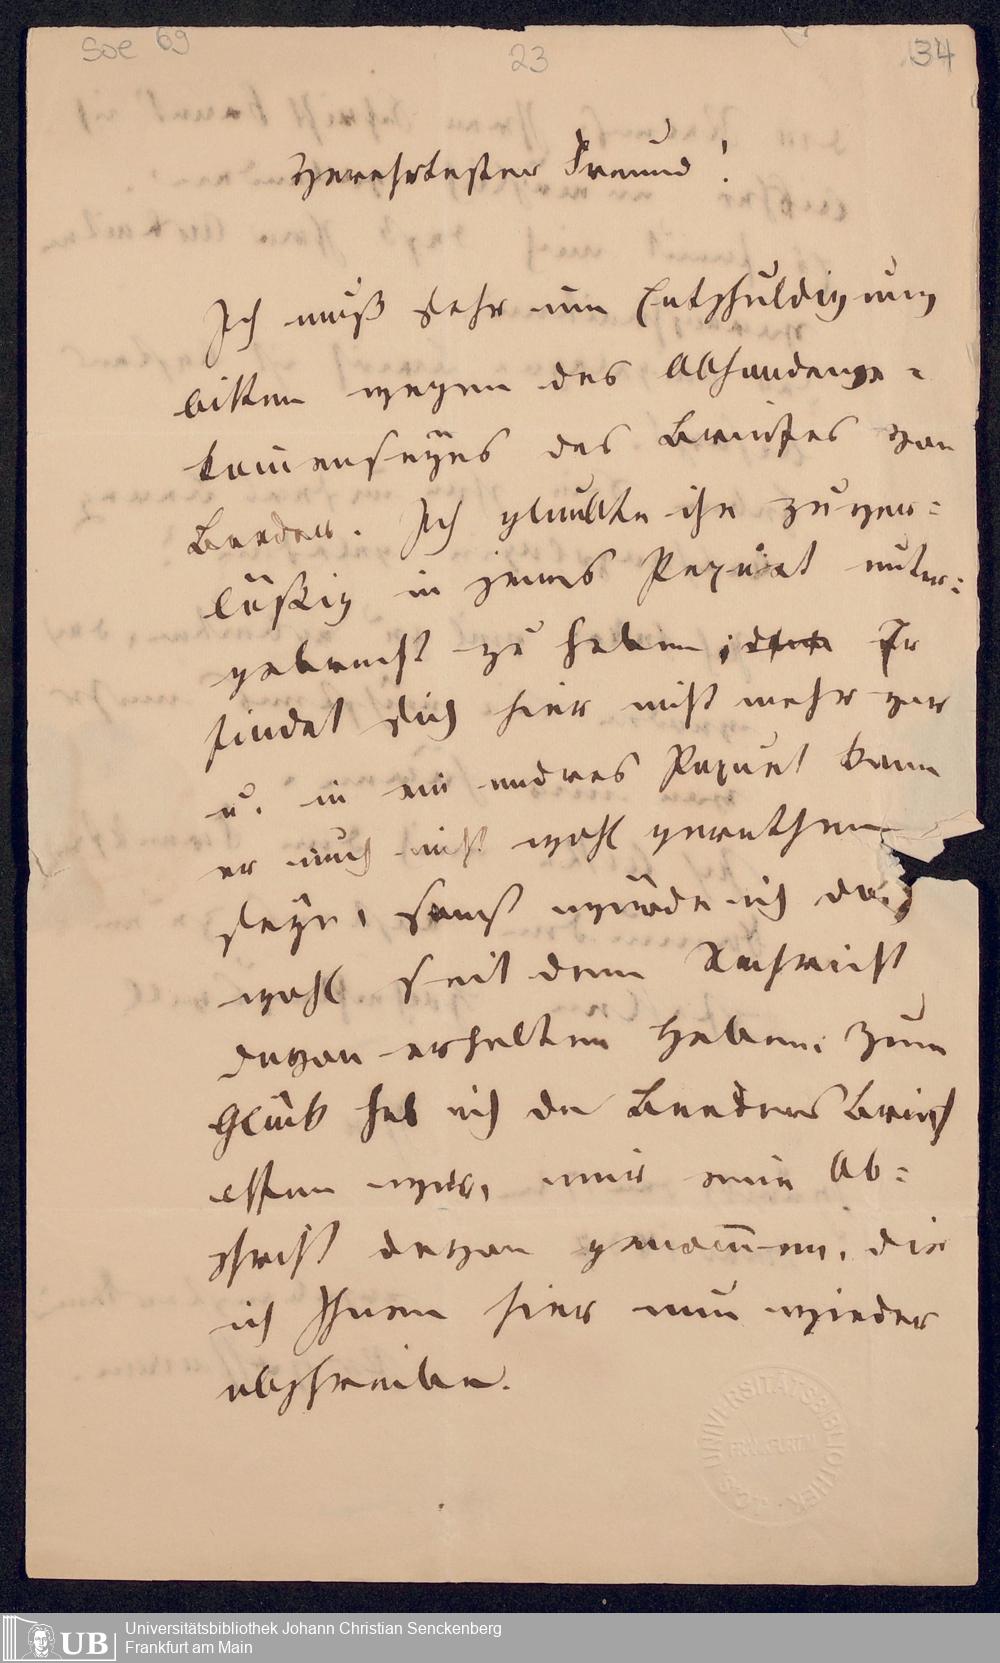 Soe 69
23
34
Verehrtester Freund!
Ich muß sehr um Entschuldigung
bitten wegen des Abhandenge=
kom̅enseyns des Briefes von
Ich glaubte ihn zuver=
läßig in jenes Paquet unter=
gebracht zu haben; Er
findet sich hier nicht mehr vor
u. in ein andres Paquet kann
er auch nicht wohl gerathen
seyn, sonst würde ich doch
wohl seit dem Nachricht
davon erhalten haben. Zum
Glück hab ich da Brief
offen war, mir eine Ab=
schrift davon genom̅en, die
ich Ihnen hier nun wieder
abschreibe.
UNIVERSITÄTSBIBLIOTHEK
FRANKFURT M
J.C.S.
UB
Universitätsbibliothek Johann Christian Senckenberg
Frankfurt am Main